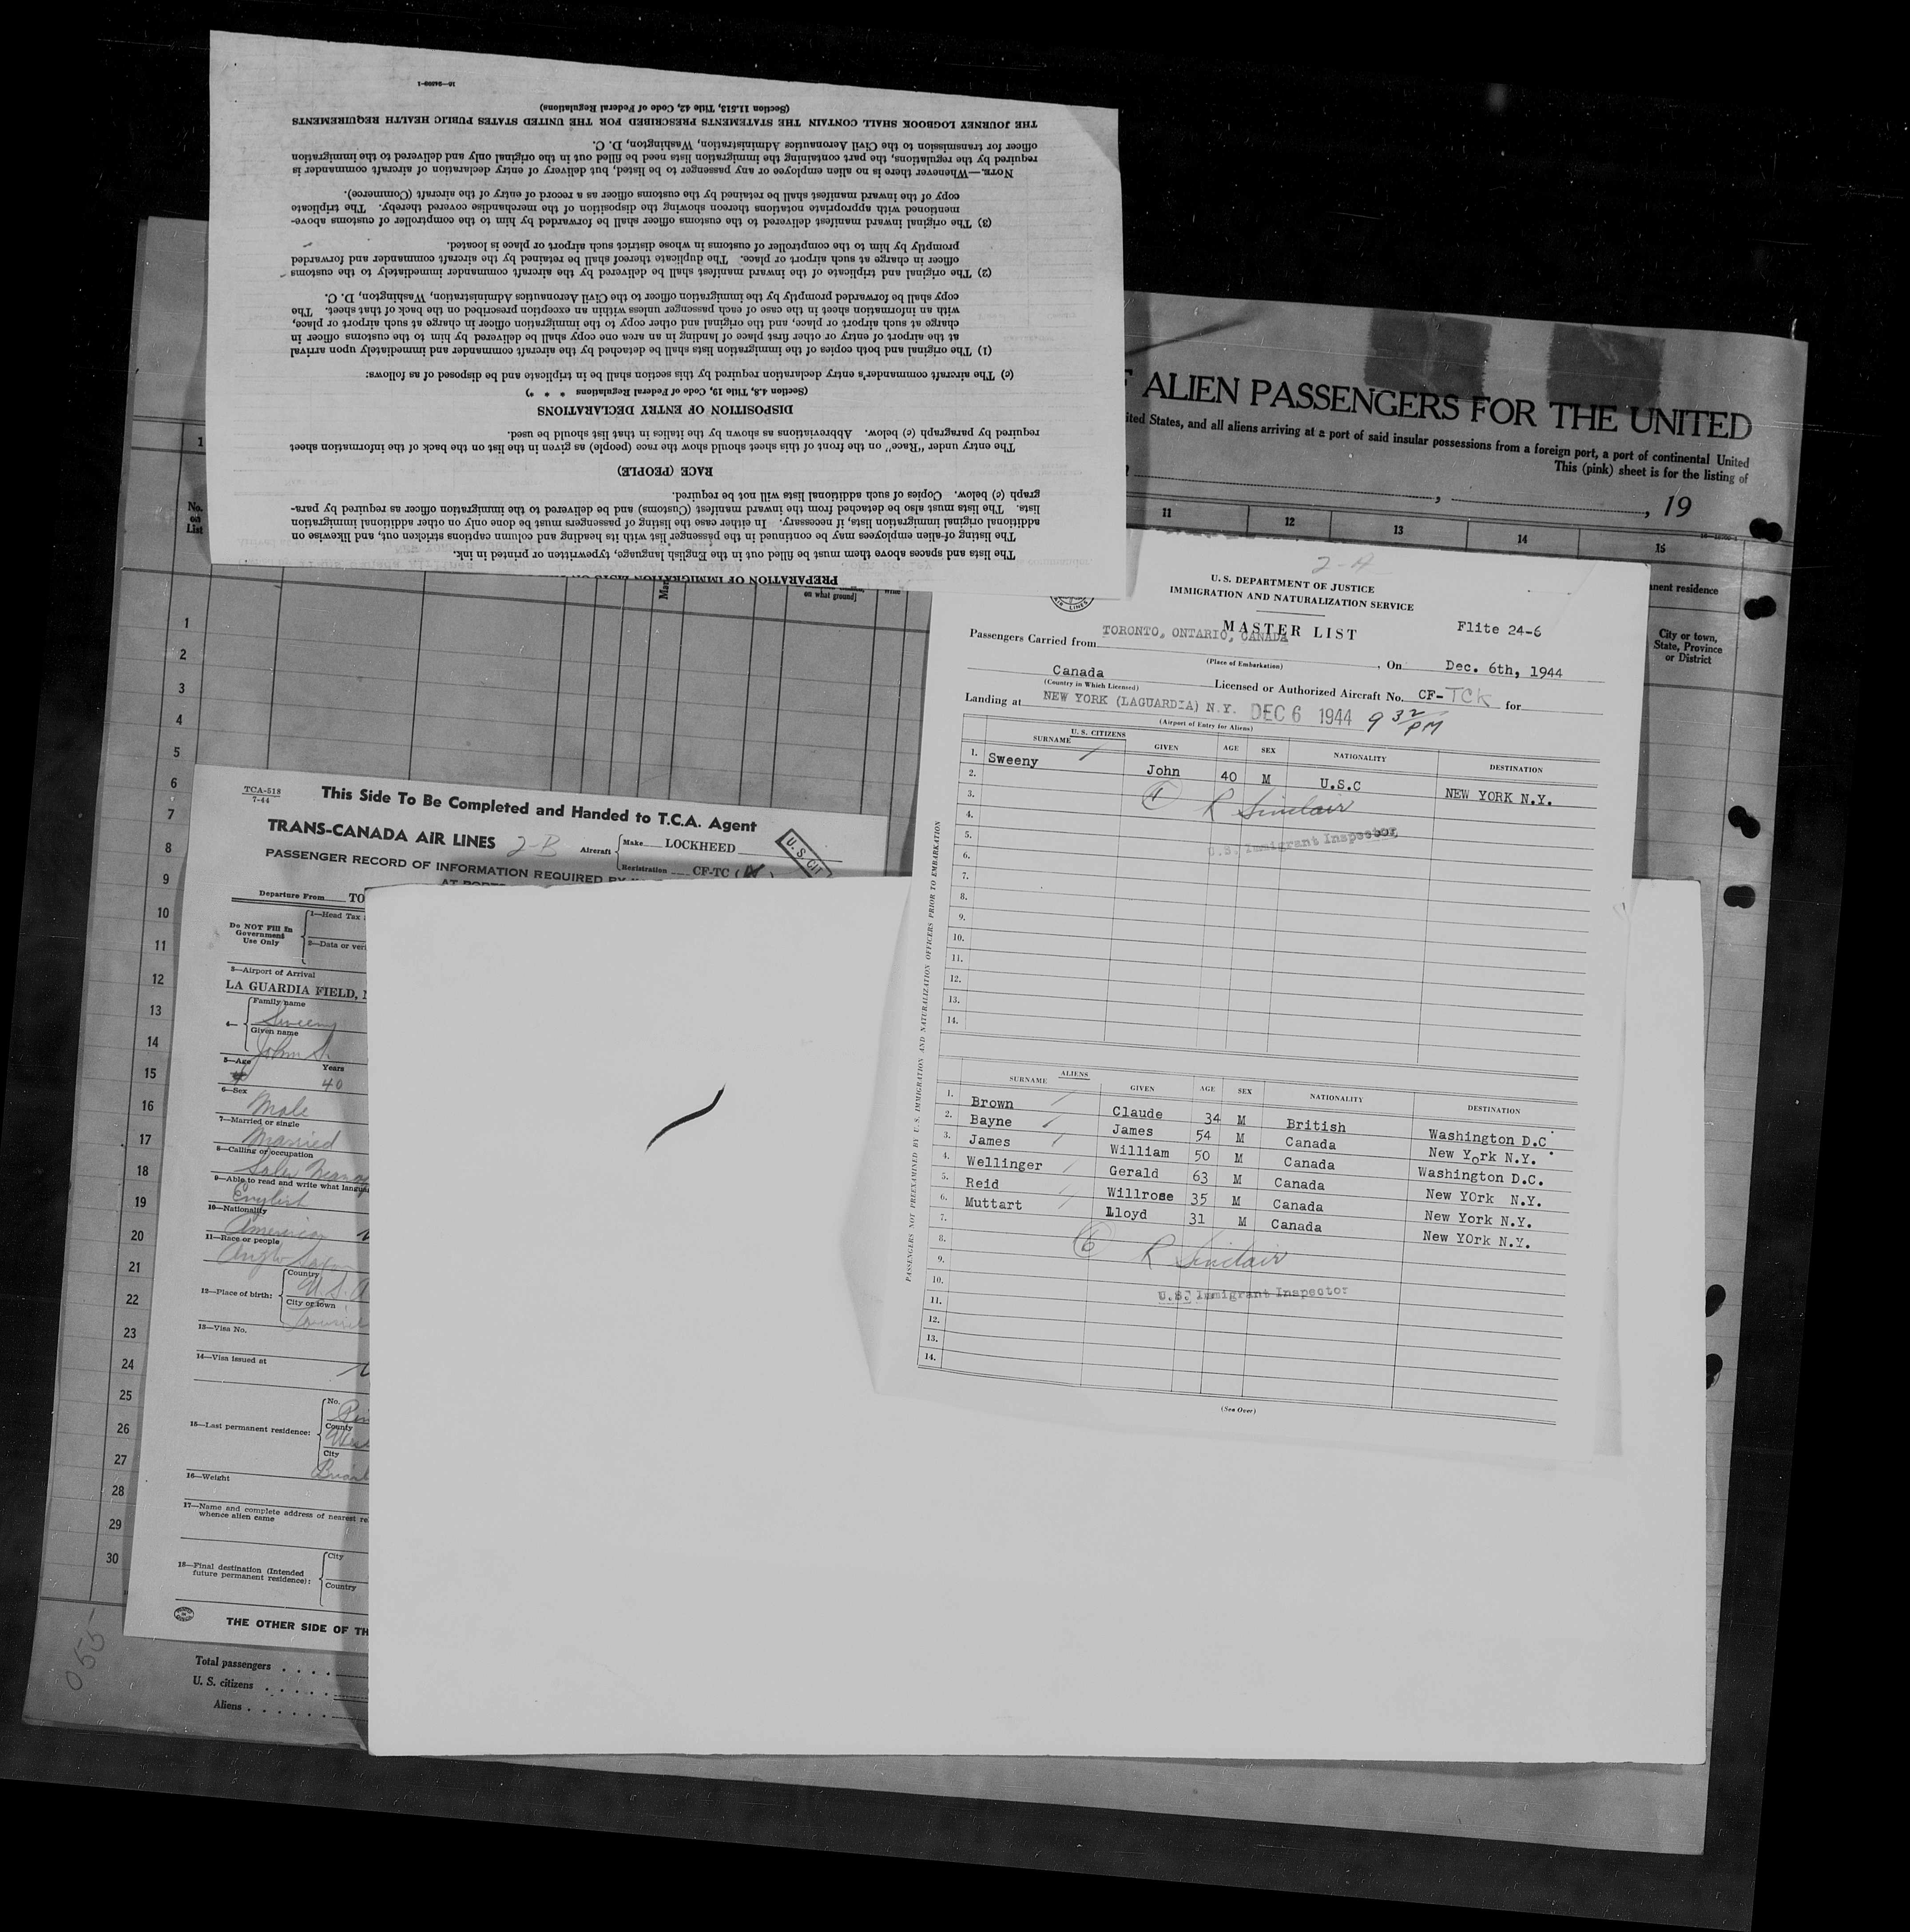 16—24599-1
PREPARATION OF IMMIGRATION LISTS
The lists and spaces above them must be filled out in the English language, typewritten or printed in ink.
The listing of alien employees may be continued in the passenger list with its heading and column captions stricken out, and likewise on
additional original immigration lists, if necessary. In either case the listing of passengers must be done only on other additional immigration
lists. The lists must also be detached from the inward manifest (Customs) and be delivered to the immigration officer as required by para-
graph (c) below. Copies of such additional lists will not be required.
RACE (PEOPLE)
The entry under "Race" on the front of this sheet should show the race (people) as given in the list on the back of the information sheet
required by paragraph (c) below. Abbreviations as shown by the italics in that list should be used.
DISPOSITION OF ENTRY DECLARATIONS
(Section 4.8, Title 19, Code of Federal Regulations * * *)
(c) The aircraft commander's entry declaration required by this section shall be in triplicate and be disposed of as follows:
(1) The original and both copies of the immigration lists shall be detached by the aircraft commander and immediately upon arrival
at the airport of entry or other first place of landing in an area one copy shall be delivered by him to the customs officer in
charge at such airport or place, and the original and other copy to the immigration officer in charge at such airport or place,
with an information sheet in the case of each passenger unless within an exception prescribed on the back of that sheet. The
copy shall be forwarded promptly by the immigration officer to the Civil Aeronautics Administration, Washington, D. C.
(2) The original and triplicate of the inward manifest shall be delivered by the aircraft commander immediately to the customs
officer in charge at such airport or place. The duplicate thereof shall be retained by the aircraft commander and forwarded
promptly by him to the comptroller of customs in whose district such airport or place is located.
(3) The original inward manifest delivered to the customs officer shall be forwarded by him to the comptroller of customs above-
mentioned with appropriate notations thereon showing the disposition of the merchandise covered thereby. The triplicate
copy of the inward manifest shall be retained by the customs officer as a record of entry of the aircraft (Commerce).
NOTE.—Whenever there is no alien employee or any passenger to be listed, but delivery of entry declaration of aircraft commander is
required by the regulations, the part containing the immigration lists need be filled out in the original only and delivered to the immigration
officer for transmission to the Civil Aeronautics Administration, Washington, D. C.
THE JOURNEY LOGBOOK SHALL CONTAIN THE STATEMENTS PRESCRIBED FOR THE UNITED STATES PUBLIC HEALTH REQUIREMENTS
(Section 11.513, Title 42, Code of Federal Regulations)
ALIEN PASSENGERS FOR THE UNITED
ited States, and all aliens arriving at a port of said insular possessions from a foreign port, a port of continental United
This (pink) sheet is for the listing of
, , 19
11 12 13 14 15
nent residence
City or town,
State, Province
or District
1
No.
on
List
on what ground]
1
2
3
4
5
6
7
8
9
10
11
12
13
14
15
16
17
18
19
20
21
22
23
24
25
26
27
28
29
30
Total passengers . . . .
U. S. citizens . . . . .
Aliens . . . . . .
055
2-A
U. S. DEPARTMENT OF JUSTICE
IMMIGRATION AND NATURALIZATION SERVICE
MASTER LIST
Flite 24-6
Passengers Carried from TORONTO, ONTARIO, CANADA, On Dec. 6th, 1944
(Place of Embarkation)
Canada Licensed or Authorized Aircraft No. CF-TCK for
(Country in Which Licensed)
Landing at NEW YORK (LAGUARDIA) N.Y. DEC 6 1944 9 32 PM
(Airport of Entry for Aliens)
U. S. CITIZENS
SURNAME GIVEN AGE SEX NATIONALITY DESTINATION
1. Sweeny John 40 M U.S.C NEW YORK N.Y.
2.
3. 1 R Sinclair
4.
5. U.S. Immigrant Inspector
6.
7.
8.
9.
10.
11.
12.
13.
14.
ALIENS
SURNAME GIVEN AGE SEX NATIONALITY DESTINATION
1. Brown Claude 34 M British Washington D.C
2. Bayne James 54 M Canada New York N.Y.
3. James William 50 M Canada Washington D.C.
4. Wellinger Gerald 63 M Canada New YOrk N.Y.
5. Reid Willrose 35 M Canada New York N.Y.
6. Muttart Lloyd 31 M Canada New YOrk N.Y.
7.
8. 6 R Sinclair
9.
10. U.S. Immigrant Inspector
11.
12.
13.
14.
(See Over)
PASSENGERS NOT PREEXAMINED BY U. S. IMMIGRATION AND NATURALIZATION OFFICERS PRIOR TO EMBARKATION
TCA-518
7-44
This Side To Be Completed and Handed to T.C.A. Agent
TRANS-CANADA AIR LINES 2-B
Aircraft Make LOCKHEED
Registration CF-TC (K)
U. S. CIT
PASSENGER RECORD OF INFORMATION REQUIRED BY
AT PORTS
Departure From TO
Do NOT Fill In
Government
Use Only
1—Head Tax
2—Data or veri
3—Airport of Arrival
LA GUARDIA FIELD,
4— Family name
Sweeny
Given name
John S.
5—Age Years
40
6—Sex
Male
7—Married or single
Married
8—Calling or occupation
Sales Manag
9—Able to read and write what langua
English
10—Nationality
American
11—Race or people
Anglo Saxon
12—Place of birth: Country
U.S.A
City or town
13—Visa No.
14—Visa Issued at
15—Last permanent residence: No.
County
West
City
16—Weight
17—Name and complete address of nearest re
whence alien came
18—Final destination (Intended
future permanent residence): City
Country
THE OTHER SIDE OF TH